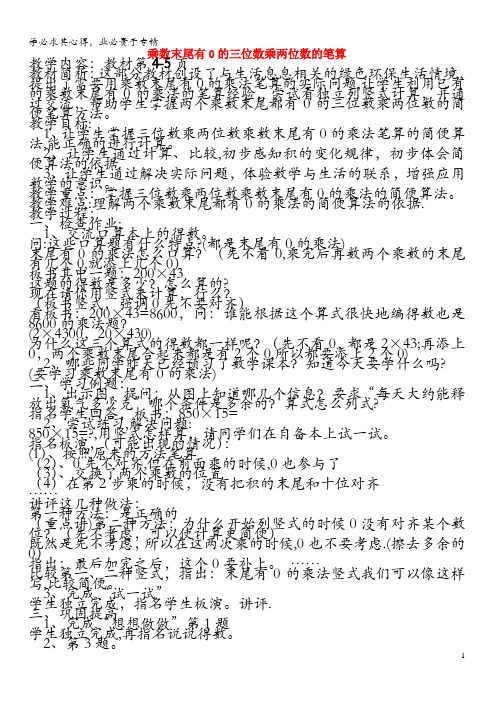 学必求其心得，业必贵于专精
乘数末尾有0的三位数乘两位数的笔算
教学内容：教材第4-5页
教材简析：这部分教材创设了与生活息息相关的绿色环保生活情境，
提出了需要用乘数末尾有0的乘法笔算的实际问题,让学生利用已有
的乘数末尾有0的乘法的笔算经验，尝试着独立列竖式计算，并通
过交流，帮助学生掌握两个乘数末尾都有0的三位数乘两位数的简
便笔算方法。
教学目标：
1、让学生掌握三位数乘两位数乘数末尾有0的乘法笔算的简便算
法,能正确的进行计算。
2、让学生通过计算、比较,初步感知积的变化规律，初步体会简
便算法的依据。
3、让学生通过解决实际问题，体验数学与生活的联系，增强应用
数学的意识。
教学重点：掌握三位数乘两位数乘数末尾有0的乘法的简便算法。
教学难点:理解两个乘数末尾都有0的乘法的简便算法的依据.
教学过程：
一、检查作业:
1、交流口算本上的得数。
问:这些口算题有什么特点?(都是末尾有0的乘法)
末尾有0的乘法怎么口算？（先不看0,乘完后再数两个乘数的末尾
有几个0,就添上几个0)
板书其中一题：200×43
这题的得数是多少？怎么算的?
现在请你用竖式来计算，行么？
（板书竖式，强调0先不要对齐）
看板书：200×43=8600，问：谁能根据这个算式很快地编得数也是
8600的乘法题？
(2×4300，20×430)
为什么这三个算式的得数都一样呢？（先不看0，都是2×43;再添上
0，两个乘数末尾合起来都是有2个0所以都要添上2个0)
2、哪些同学昨天已经预习了数学课本？知道今天要学什么吗?
(要学习乘数末尾有0的乘法)
二、学习例题:
1、出示图，提问：从图上知道哪几个信息？要求“每天大约能释
放出氧气多少克”哪个条件是多余的？算式怎么列式?
指名学生回答，板书：850×15=
2、尝试练习,解决问题:
850×15=?,用竖式怎样算，请同学们在自备本上试一试。
指名板演，（可能出现的情况）：
(1)、按照原来的方法笔算
（2)、0先不对齐,但在前面乘的时候,0也参与了
（3)、交换了两个乘数的位置
（4）在第2步乘的时候，没有把积的末尾和十位对齐
……
讲评这几种做法：
第一种方法：是正确的
（重点讲)第二种方法：为什么开始列竖式的时候0没有对齐某个数
位？（先不考虑，可以使计算更简便)
既然是先不考虑，所以在这两次乘的时候,0也不要考虑.(擦去多余的
0)
指出：最后加完之后，这个0要补上。 ……
比较第一、二种竖式，指出：末尾有0的乘法竖式我们可以像这样
写,比较简便。
3、完成“试一试”
学生独立完成，指名学生板演。讲评.
三、巩固提高
1、完成“想想做做”第1题
学生独立完成,再指名说说得数。
2、第3题。
1